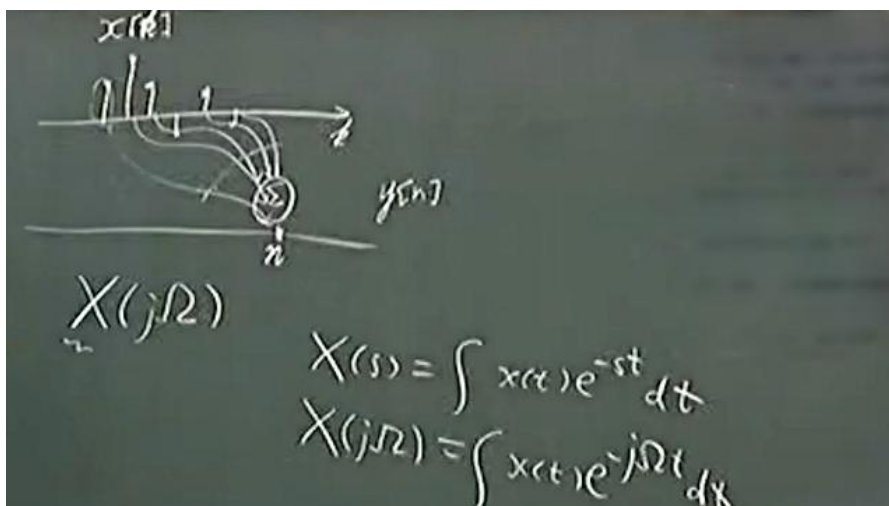 x[k]
k
y[n]
Σ
n
X(jΩ)
X(s) = ∫ x(t)e^-st dt
X(jΩ) = ∫ x(t)e^-jΩt dt